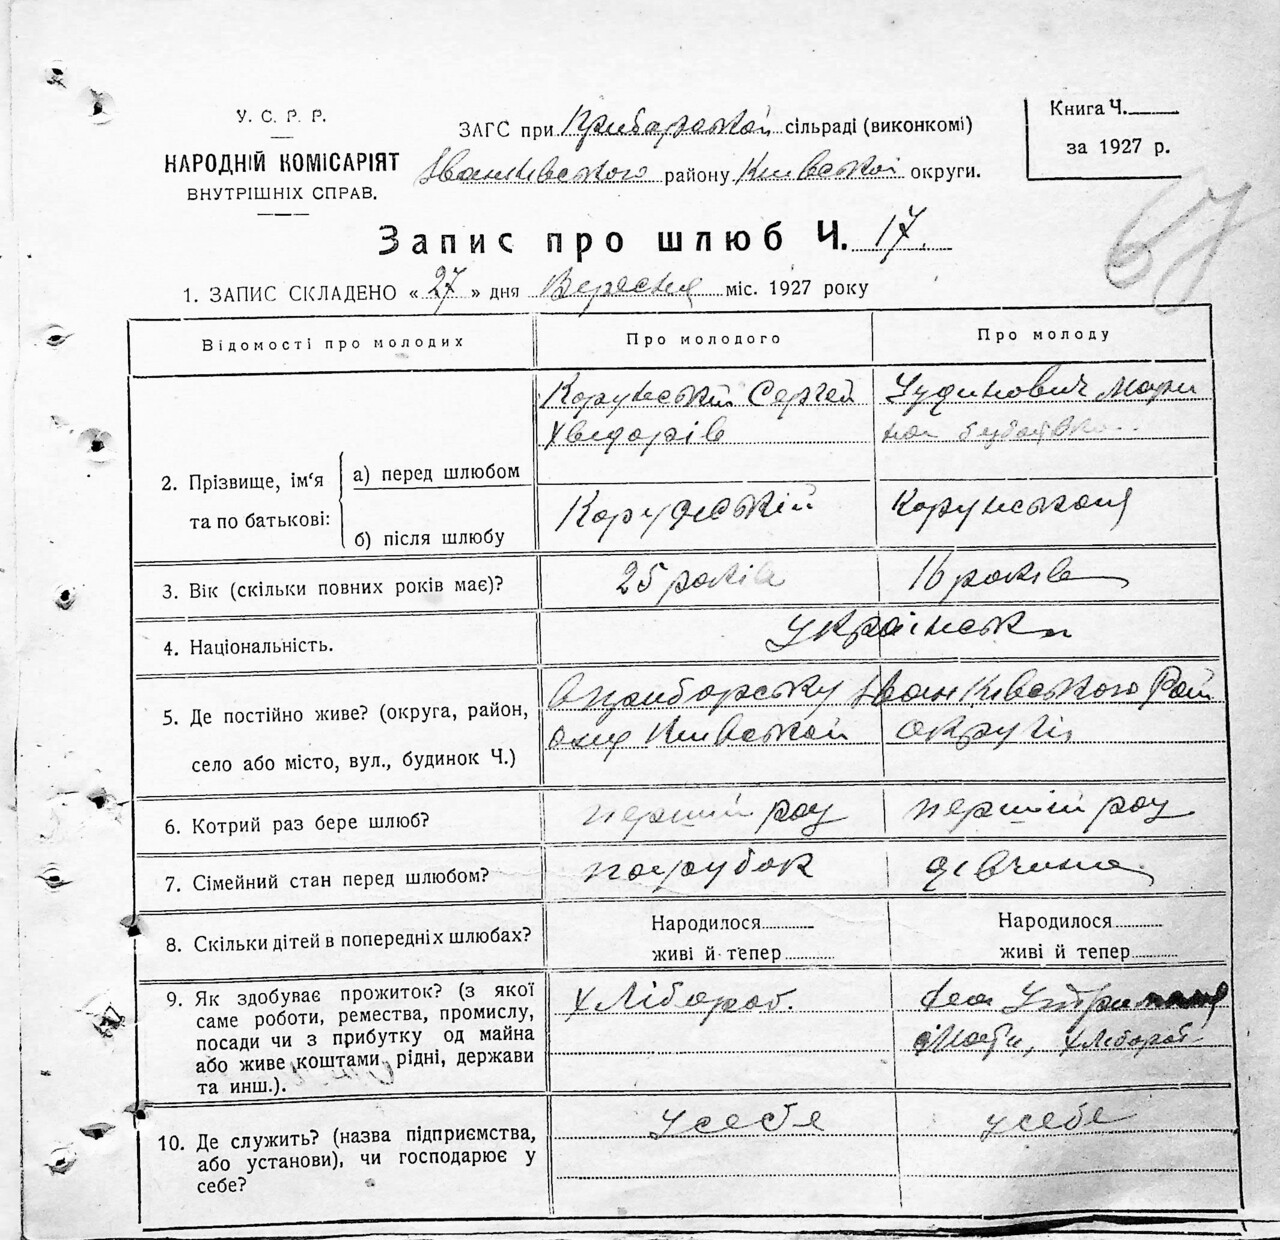 У. С. Р. Р.
НАРОДНІЙ КОМІСАРІЯТ
ВНУТРІШНІХ СПРАВ.
ЗАГС при Прибарской сільраді (виконкомі)
Іванківського району Київської округи.
Книга Ч.
за 1927 р.
67
Запис про шлюб Ч. 17.
1. ЗАПИС СКЛАДЕНО « 27 » дня Вересня міс. 1927 року
Відомості про молодих
Про молодого
Про молоду
2. Прізвище, ім'я та по батькові:
а) перед шлюбом
Корунській Сергей
Хведорів
Чудинович Мари
б) після шлюбу
Корунській
Корунськоя
3. Вік (скільки повних років має)?
25 років
16 років
4. Національність.
Українськ
5. Де постійно живе? (округа, район,
село або місто, вул., будинок Ч.)
Іванківського Рай
ону Київськой округи
6. Котрий раз бере шлюб?
перший раз
перший раз
7. Сімейний стан перед шлюбом?
парубок
дівчина
8. Скільки дітей в попередніх шлюбах?
Народилося
живі й тепер
Народилося
живі й тепер
9. Як здобуває прожиток? (з якої
саме роботи, ремества, промислу,
посади чи з прибутку од майна
або живе коштами рідні, держави
та инш.).
Хлібороб.
хлібороб
10. Де служить? (назва підприємства,
або установи), чи господарює у
себе?
у себя
у себе